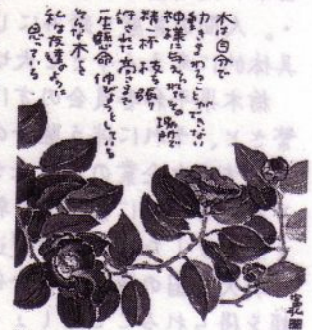 木は自分で
動きまわることができない
神様に与えられたその場所で
精一杯 枝を張り
許された高さまで
一生懸命 伸びようとしている
そんな木を
私は友達のように
思っている